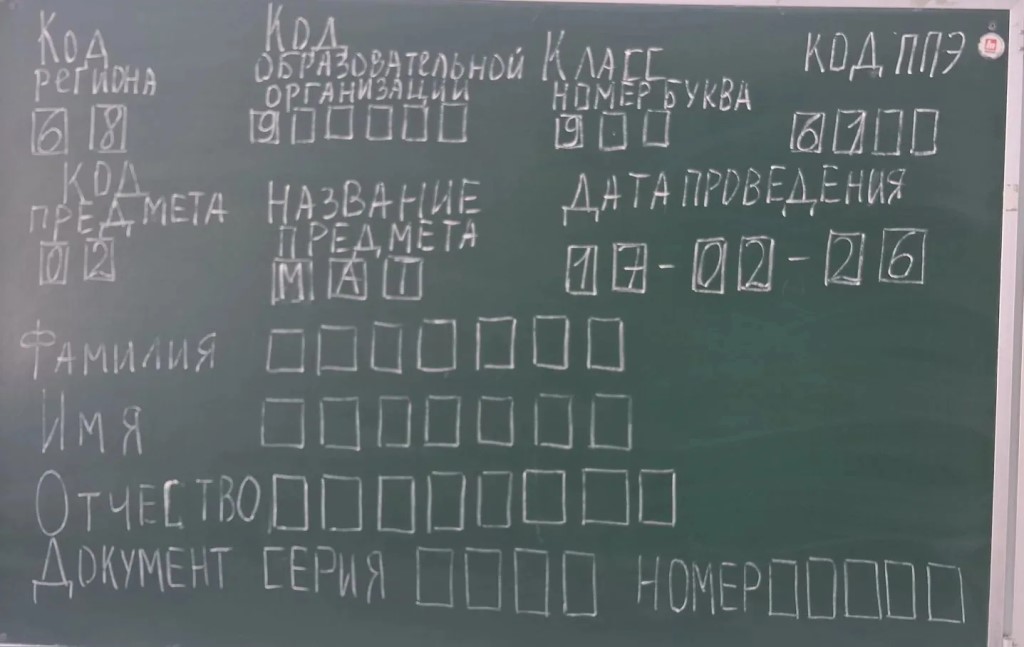 Код региона
6 8
Код образовательной организации
9
Класс номер буква
9
Код ППЭ
6 1
Код предмета
0 2
Название предмета
М А Т
Дата проведения
17-02-26
Фамилия
Имя
Отчество
Документ серия номер